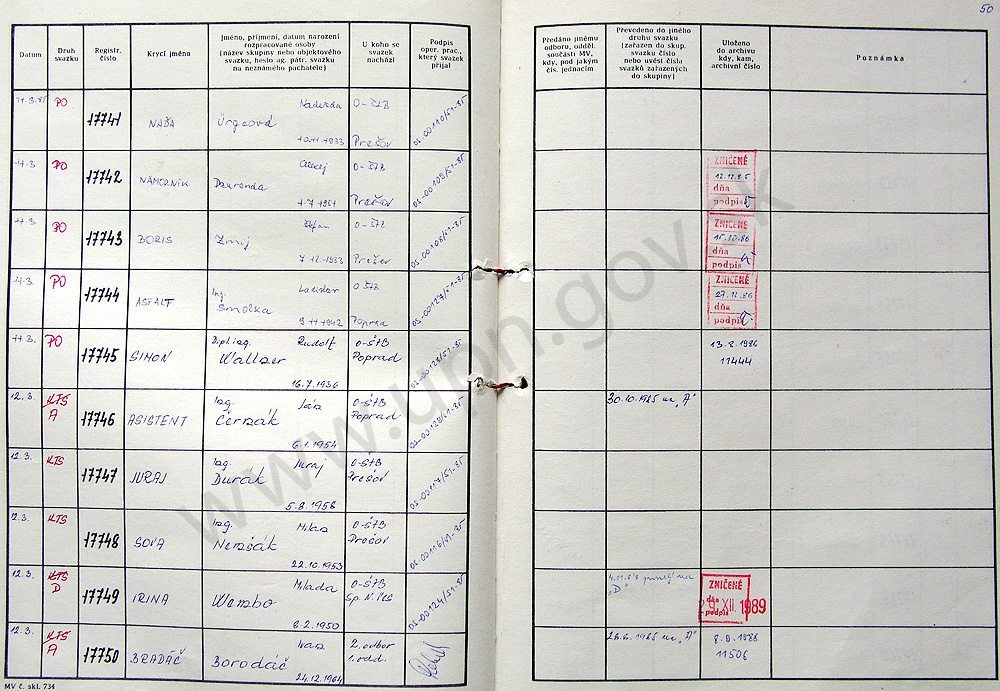 50
Datum
Druh svazku
Registr. číslo
Krycí jméno
Jméno, příjmení, datum narození rozpracované osoby (název skupiny nebo objektového svazku, heslo ag. pátr. svazku na neznámého pachatele)
U koho se svazek nachází
Podpis oper. prac., který svazek přijal
Předáno jinému odboru, odděl. součásti MV, kdy, pod jakým čís. jednacím
Převedeno do jiného druhu svazku (zařazen do skup. svazku číslo nebo uvést čísla svazků zařazených do skupiny)
Uloženo do archivu kdy, kam, archivní číslo
Poznámka
11.3.85 PO 17741 NAĎA Nadežda Űrgeová 10.11.1933 O-ŠTB Prešov OS-00110/51-85
11.3. PO 17742 NÁMORNÍK Dzurenda 1.7.1951 O-ŠTB Prešov OS-00109/51-85
ZNIČENÉ 12.12.85 dňa podpis
11.3. PO 17743 BORIS Štefan Zmij 7.12.1933 O-ŠTB Prešov OS-00108/51-85
ZNIČENÉ 15.10.86 dňa podpis
11.3. PO 17744 ASFALT Ing. Ladislav Smolka 9.11.1942 O ŠTB Poprad OS-00127/51-85
ZNIČENÉ 27.12.86 dňa podpis
11.3. PO 17745 SIMON Dipl.ing. Rudolf Wallner 16.7.1936 O-ŠTB Poprad OS-00128/51-85
13.8.1986 11444
12.3. KTS A 17746 ASISTENT Ing. Ján Černák 6.1.1954 O-ŠTB Poprad OS-00129/51-85
30.10.1985 na "A"
12.3. KTS 17747 JURAJ Ing. Juraj Durák 5.8.1958 O-ŠTB Prešov OS-00117/51-85
12.3. KTS 17748 SOVA Ing. Milan Nemšák 22.10.1953 O-ŠTB Prešov OS-00116/51-85
12.3. KTS D 17749 IRINA Milada Wambo 8.2.1950 O-ŠTB Sp. N. Ves OS-00124/51-85
4.11.87 na "D"
ZNIČENÉ dňa podpis 29. XII. 1989
12.3. KTS A 17750 BRADÁČ Ivan Borodáč 24.12.1964 2. odbor 1. odd.
28.6.1985 na "A"
8.9.1988 11506
MV č. skl. 734
www.upn.gov.sk